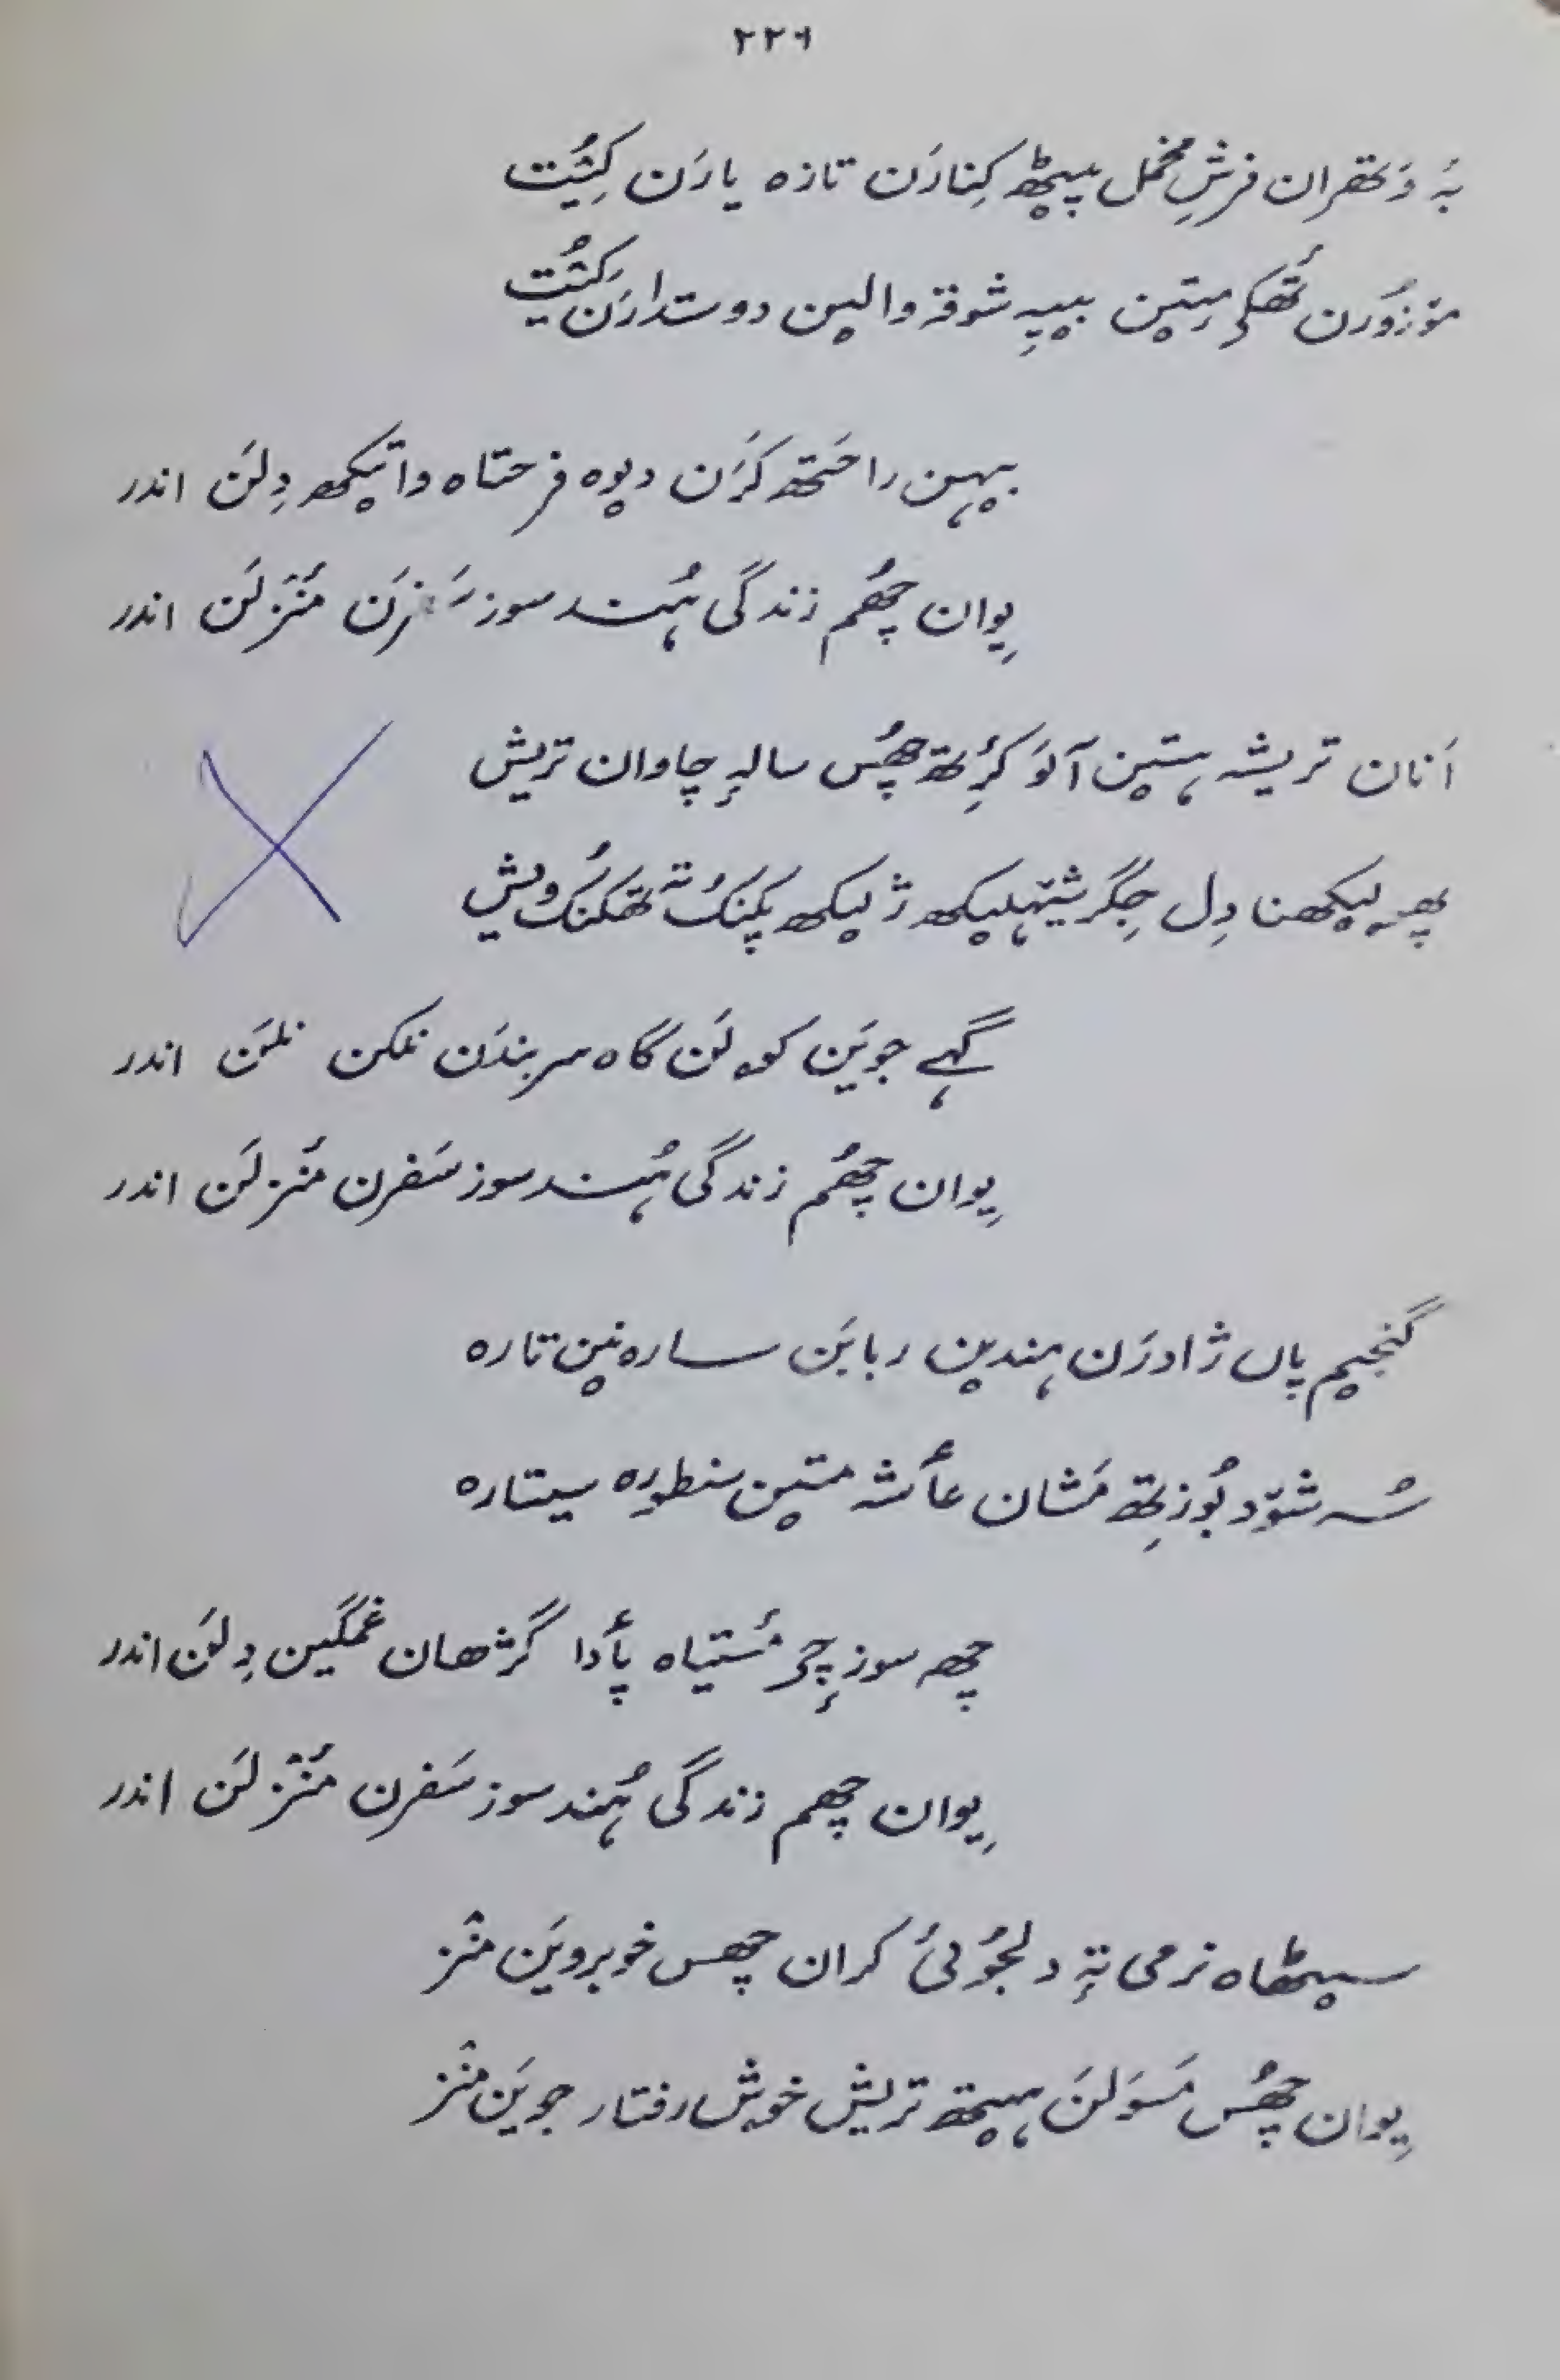 ۲۲۶
بہٕ وَتھران فرشِ مخمل پیٚٹھ کِنارَن تازہ یارَن کِیُت
موٚزوٗرَن تھٔکۍ مِتیٚن بییہِ شوقہٕ والیٚن دوستدارَن کِیُت
بیہن راحتھ کَرَن دیوہ فرحتاہ واتیکھ دِلَن اندر
یِوان چھُم زندگی ہُند سوز سَفرَن مَنٛزلَن اندر
اَنان تریشہِ ہتیٚن آلَو کٔرِتھ چھُس سالہٕ چاوان تریش
پھہلیکھنا دِل جِگر شیٚہلیکھ ژلیکھ پَکنُک تہٕ تھکنُک ویش
گہے جویَن کولَن گاہ سربندَن نلکن نلَن اندر
یِوان چھُم زندگی ہُند سوز سَفرن مَنٛزلَن اندر
گنجیم پاں ژادرَن ہندین ربابَن سارہ نیٚن تارہ
شُہ شوٚد بوٗزِتھ مَشان عأشہ متیٚن سنطورہ سیتارہ
چھہ سوزٕچ مٔستیاہ پأدا گژھان غمگین دِلَن اندر
یِوان چھم زندگی ہُند سوز سَفرن مَنٛزلَن اندر
سیٚٹھاہ نرمی تہٕ دلجوٗئی کران چھس خوبرویَن منٛز
یِوان چھُس مَسوَلَن ہیتھ تریش خوش رفتار جویَن منٛز